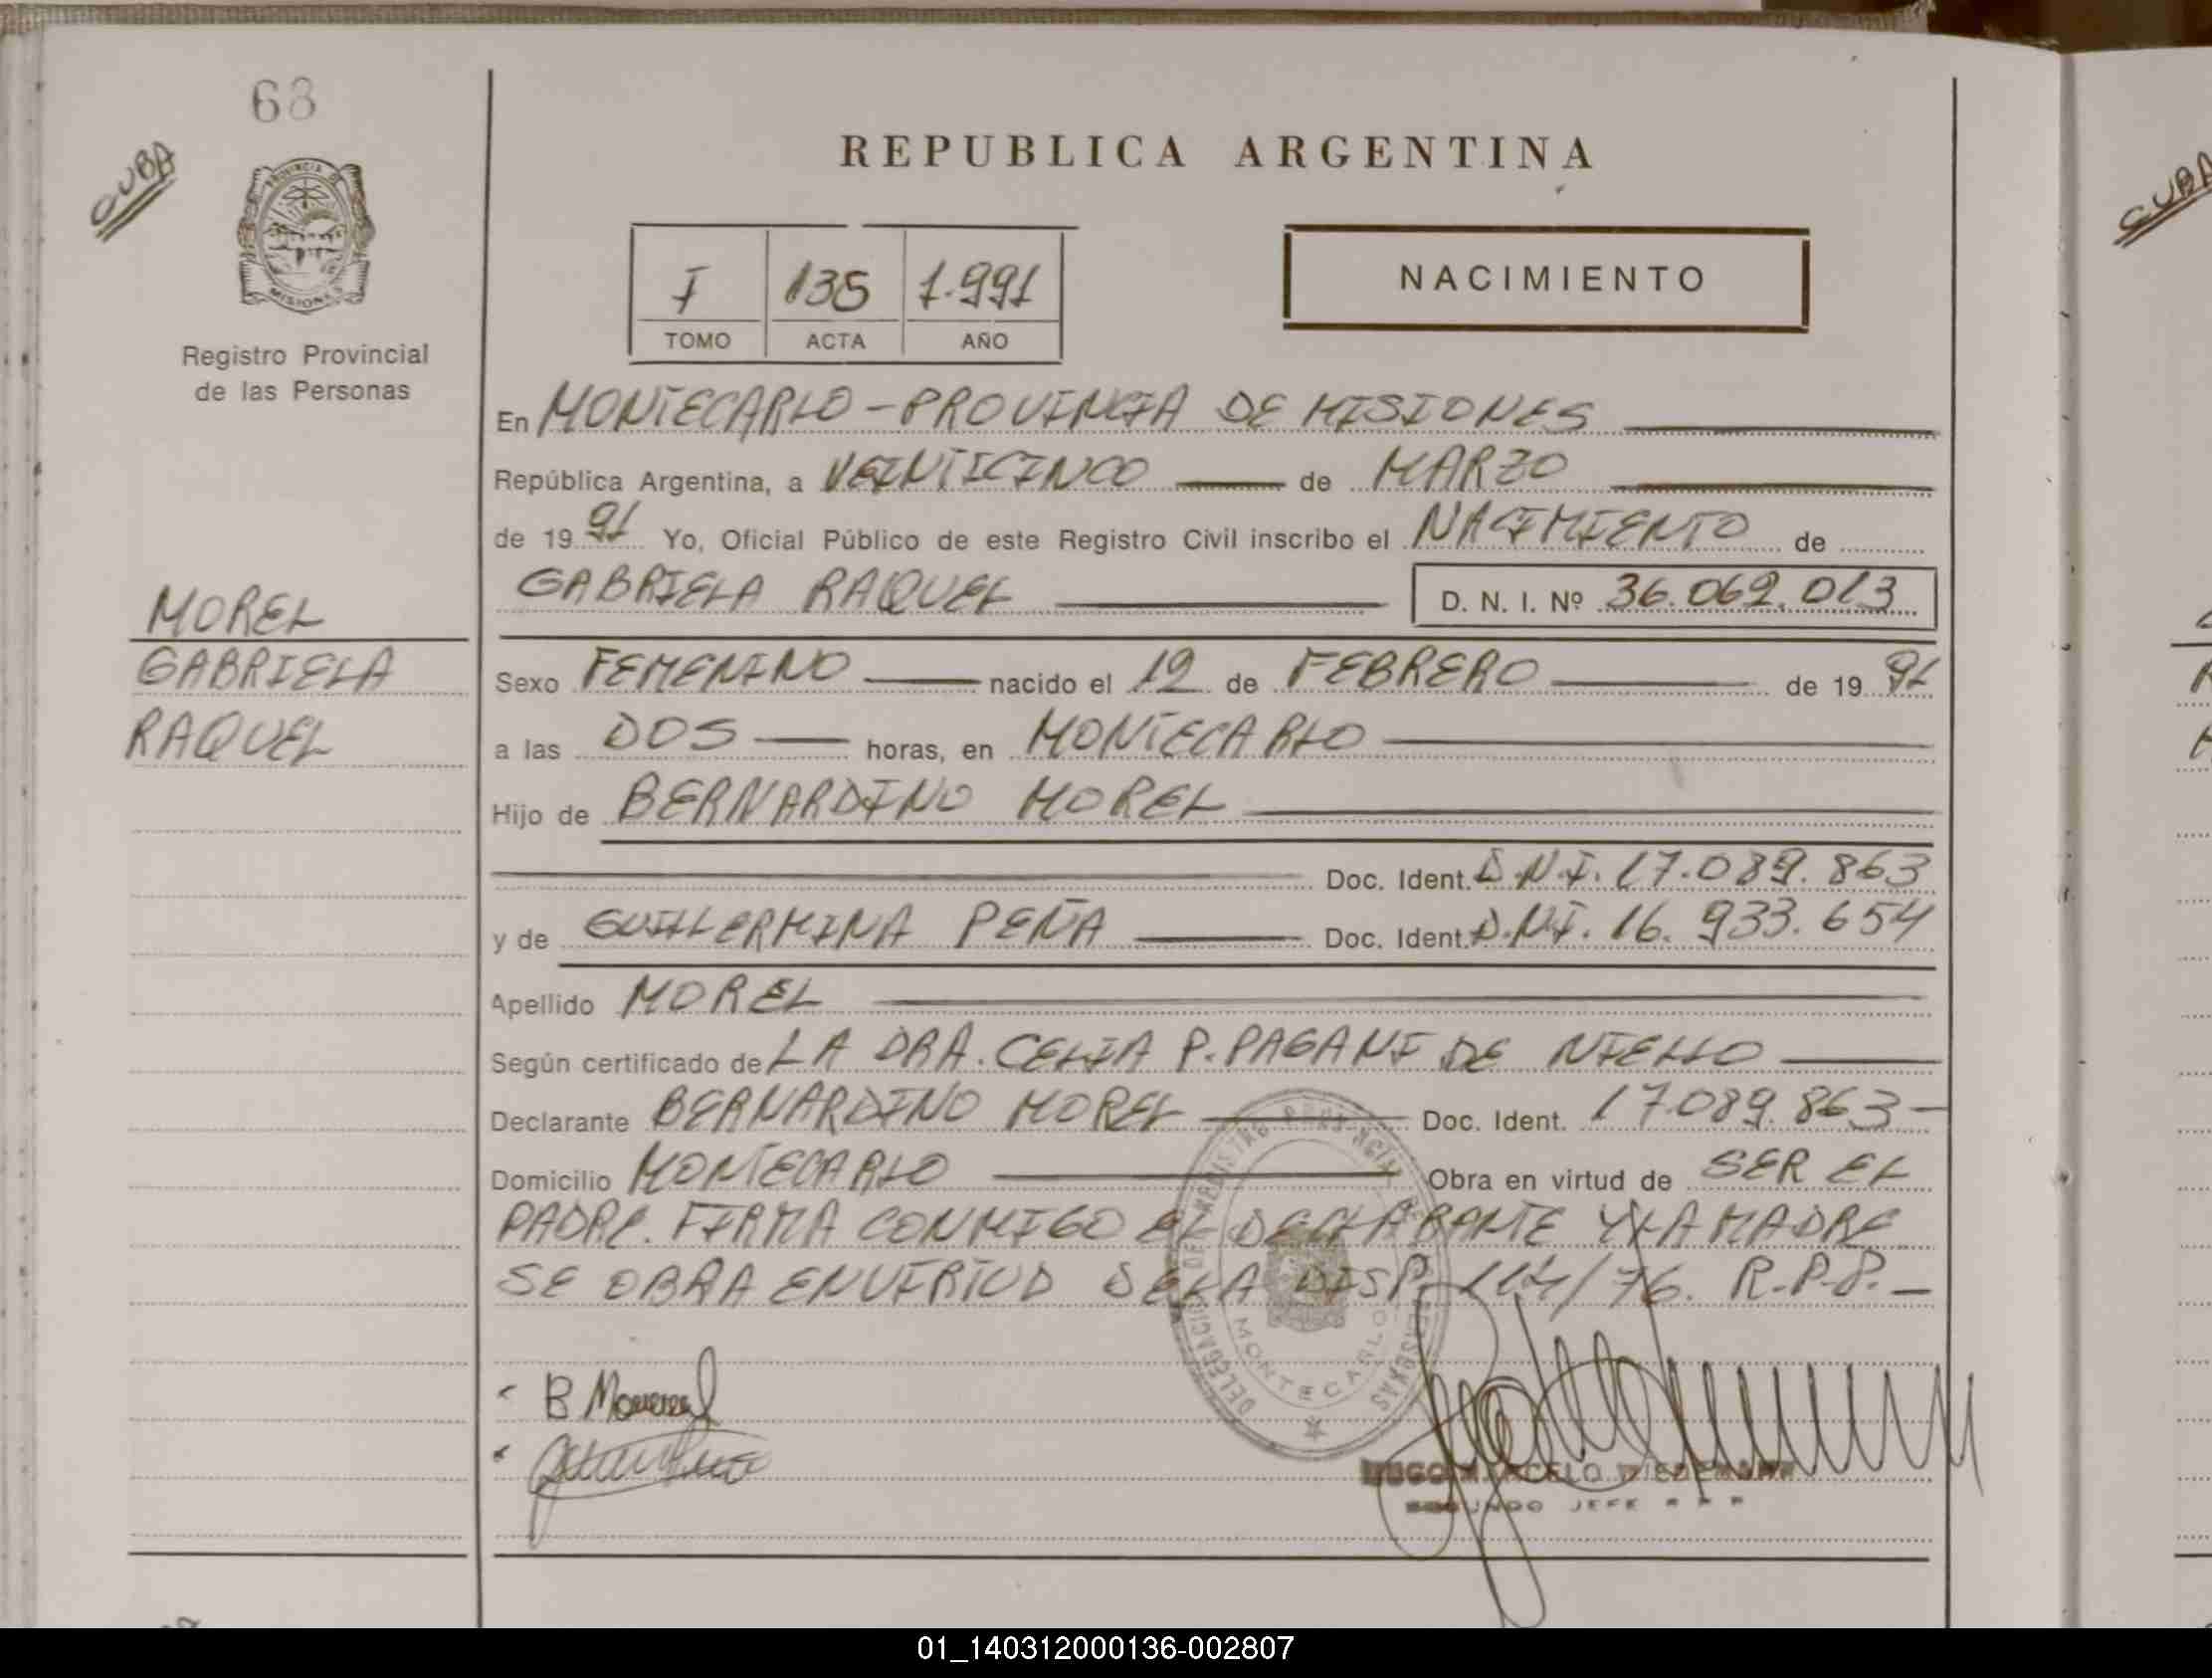 68
CUBA
PROVINCIA DE
MISIONES
Registro Provincial
de las Personas
MOREL
GABRIELA
RAQUEL
REPUBLICA ARGENTINA
I 135 1.991
TOMO ACTA AÑO
NACIMIENTO
En MONTECARLO - PROVINCIA DE MISIONES
República Argentina, a VEINTICINCO de MARZO
de 1991 Yo, Oficial Público de este Registro Civil inscribo el NACIMIENTO de
GABRIELA RAQUEL D. N. I. Nº 36.062.013
Sexo FEMENINO nacido el 12 de FEBRERO de 1991
a las DOS horas, en MONTECARLO
Hijo de BERNARDINO MOREL
Doc. Ident. D.N.I. 17.089.863
y de GUILLERMINA PEÑA Doc. Ident. D.N.I. 16.933.654
Apellido MOREL
Según certificado de LA DRA. CELIA P. PAGANI DE NIELLO
Declarante BERNARDINO MOREL Doc. Ident. 17.089.863-
Domicilio MONTECARLO Obra en virtud de SER EL
PADRE. FIRMA CONMIGO EL DECLARANTE Y LA MADRE
SE OBRA EN VIRTUD DE LA DISP. 114/76. R.P.P.-
DELEGACION DEL REGISTRO PROVINCIAL DE LAS PERSONAS
MONTECARLO
B Morel
HUGO MARCELO WIEDEMANN
SEGUNDO JEFE R P P
CUBA
01_140312000136-002807